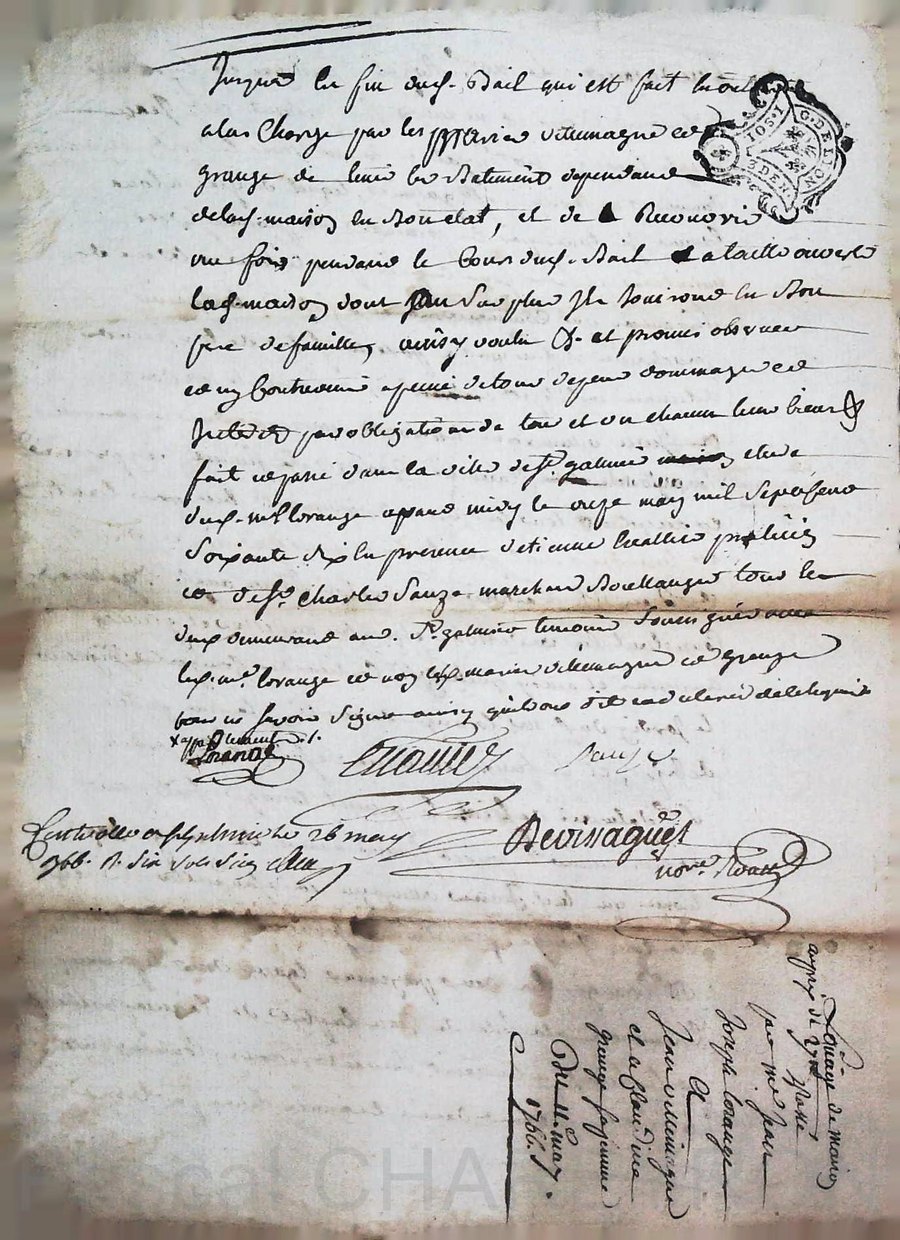 Jusque la fin dud. Bail qui est fait
alas Charge par les marie villemagne et
grange de tenir les Batiments dependans
delad. maison en Bon etat, et de Recouvrir
une fois pendant le Cours dud. Bail a taille ouverte
lad. maison dont au Surplus Ils Jouiront en Bon
pere defamille, ainsy voulu &. et promis observer
et ny Contrevenir apeine detous depens dommages et
Interets par obligation de tous et un chacun leurs biens &
fait et passé dans la ville de St. galmier etude
dud. me lorange avant midy le onze may mil Septcent
Soixante Six en presence detienne praticien
et de Sr. Charles Sauze marchand Boullanger tous les
deux demeurant aud. St. galmier temoins Soussignés avec
led. me. lorange et non lesd. mariés villemagne et grange
pour ne Savoir Signer ainsy quils ont dit
Lorange
Sauze
Controllé a St galmier le 26 may
1766. R. Six Sols Six
nore. Royal
G. DE LION
DEN
Loüage de maison
au prix de
par me Jean
Joseph Lorange
A
Jean villemagne
et a Claudine
grange sa femme
Du 11. may
1766.